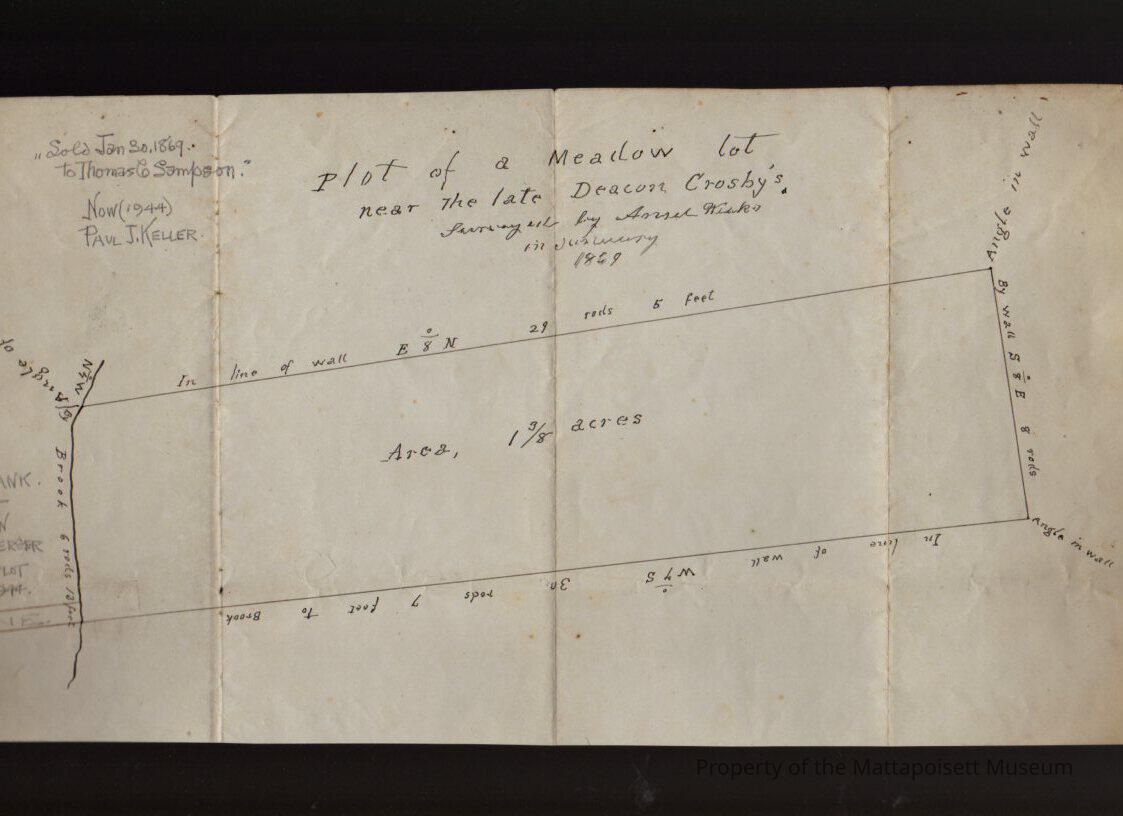 „Sold Jan 30, 1869.
To Thomas C Sampson."
Now (1944)
PAUL J. KELLER.
Plot of a Meadow lot
near the late Deacon Crosby's.
Surveyed by Ansel Weeks
in January
1869
Angle in wall
In line of wall E 8° N 29 rods 5 feet
By wall S 8° E 8 rods
Angle in wall
Area, 1 3/8 acres
In line of wall W 7° S 30 rods 7 feet to Brook
By Brook 6 rods
Angle of
ANK.
PLOT
Property of the Mattapoisett Museum